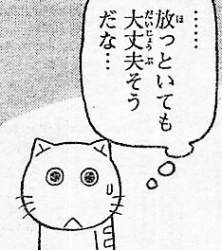 ……
放っといても
大丈夫そう
だな…